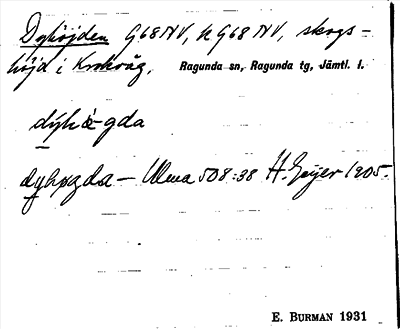 Dyhöjden G68NV, h G68NV, skogs-
höjd i Krokvåg, Ragunda sn, Ragunda tg, Jämtl. l.
dýhö̀gda
dyhøgda — Ulma 508:38 H. Geijer 1905.
E. BURMAN 1931